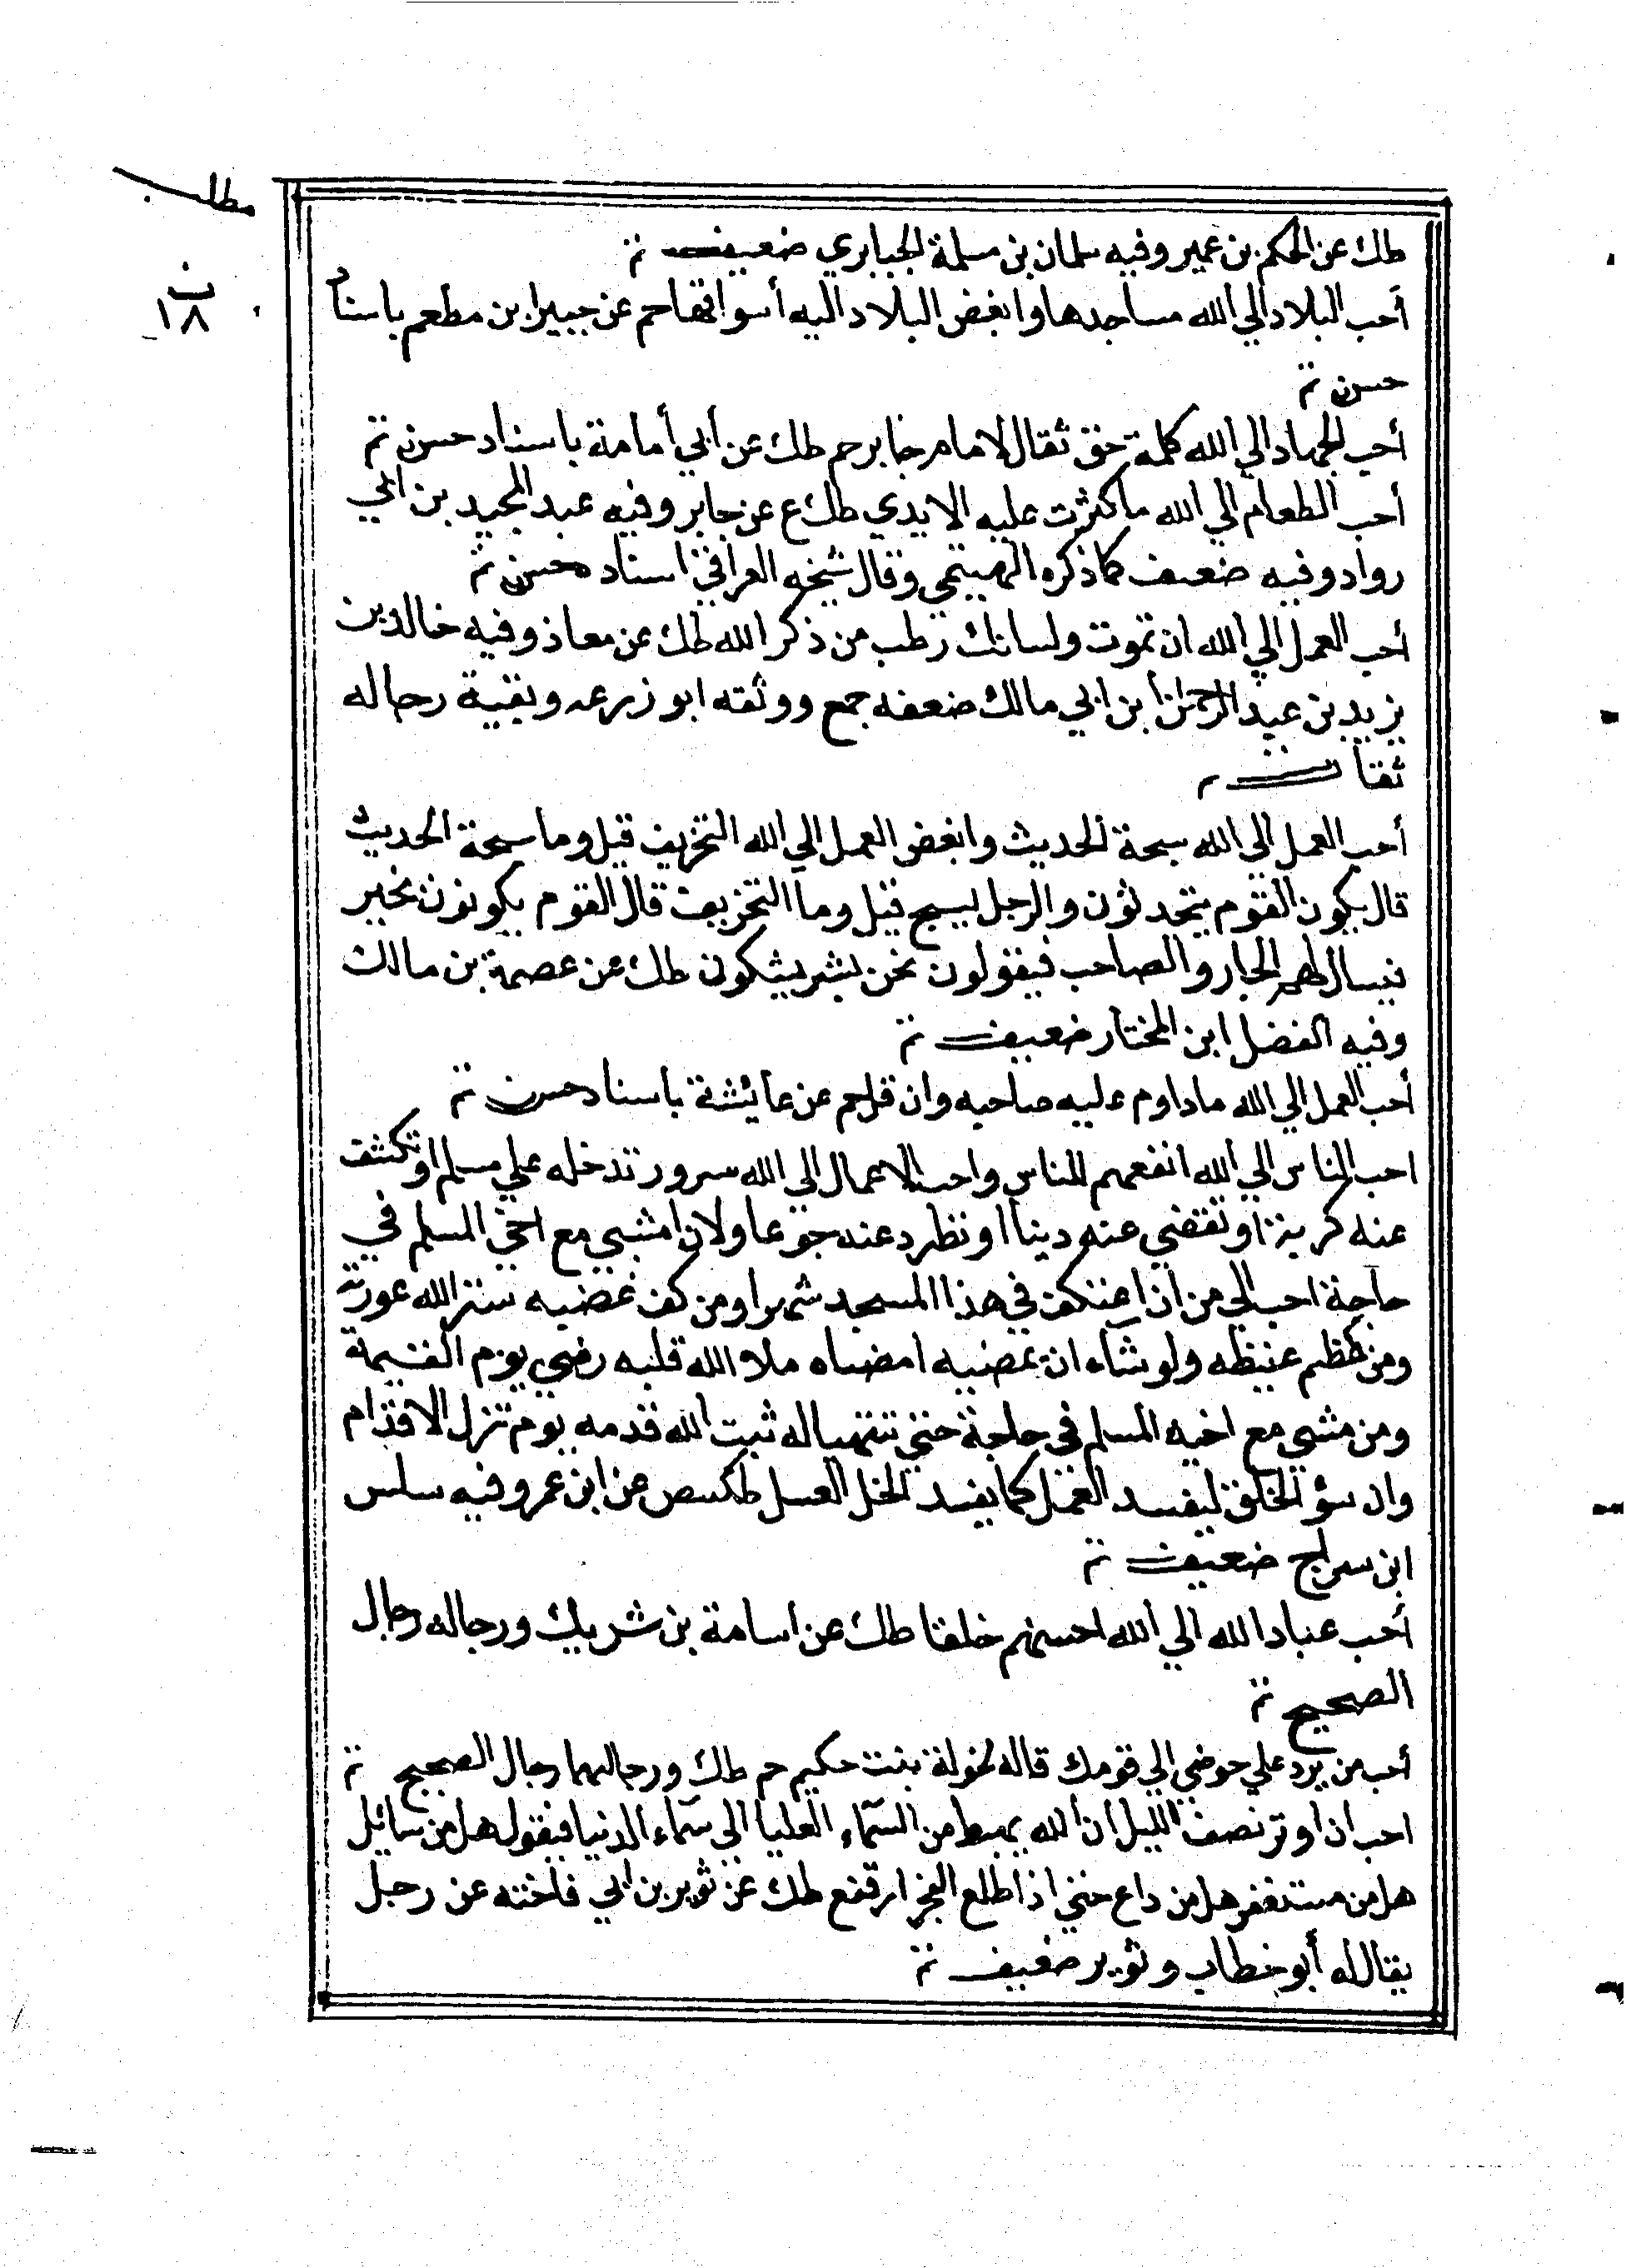 مطلب
ن
١٨
طك عن الحكم بن عمير وفيه سلمان بن سلمة الجبابري ضعيف
أحب البلاد الي الله مساجدها وابغض البلاد اليه أسواقها حم عن جبير ابن مطعم باسناد
حسن
أحب الجهاد الي الله كلمة حق تقال لامام جابر حم طك عن أبي أمامة باسناد حسن
أحب الطعام الي الله ما كثرت عليه الايدي طك ع عن جابر وفيه عبد المجيد بن ابي
رواد وفيه ضعف كما ذكره الهيتمي وقال شيخه العراقي اسناد حسن
أحب العمل الي الله ان تموت ولسانك رطب من ذكر الله طك عن معاذ وفيه خالد بن
يزيد بن عبد الرحمن ابن ابي مالك ضعفه جمع ووثقه ابو زرعه وبقية رجاله
ثقات
أحب العمل الي الله سبحة الحديث وابغض العمل الي الله التخريف قيل وما سبحة الحديث
قال يكون القوم يتحدثون والرجل يسبح قيل وما التخريف قال القوم يكونون بخير
فيسال لهم الجار والصاحب فيقولون نحن بشر يشكون طك عن عصمة بن مالك
وفيه الفضل ابن المختار ضعيف
أحب العمل الي الله ما داوم عليه صاحبه وان قل حم عن عايشة باسناد حسن
احب الناس الي الله انفعهم للناس واحب الاعمال الي الله سرور تدخله علي مسلم او تكشف
عنه كربة او تقضي عنه دينا او تطرد عنه جوعا ولان امشي مع اخي المسلم في
حاجة احب الي من ان اعتكف في هذا المسجد شهرا ومن كف غضبه ستر الله عورته
ومن كظم غيظه ولو شاء ان يمضيه امضاه ملاء الله قلبه رضي يوم القيمة
ومن مشي مع اخيه المسلم في حاجة حتي تتهيا له ثبت الله قدمه يوم تزل الاقدام
وان سؤ الخلق ليفسد العمل كما يفسد الخل العسل طكسص عن ابن عمر وفيه سلس
ابن سراج ضعيف
أحب عباد الله الي الله احسنهم خلقا طك عن أسامة بن شريك ورجاله رجال
الصحيح
أحب من يرد علي حوضي الي قومك قاله لخولة بنت حكيم حم طك ورجالهما رجال الصحيح
احب ان اوتر نصف الليل ان الله يهبط من السماء العليا الي سماء الدنيا فيقول هل من سائل
هل من مستغفر هل من داع حتي اذا طلع الفجر ارتفع طك عن ثوير بن ابي فاخته عن رجل
يقال له أبو خطاب وثوير ضعيف